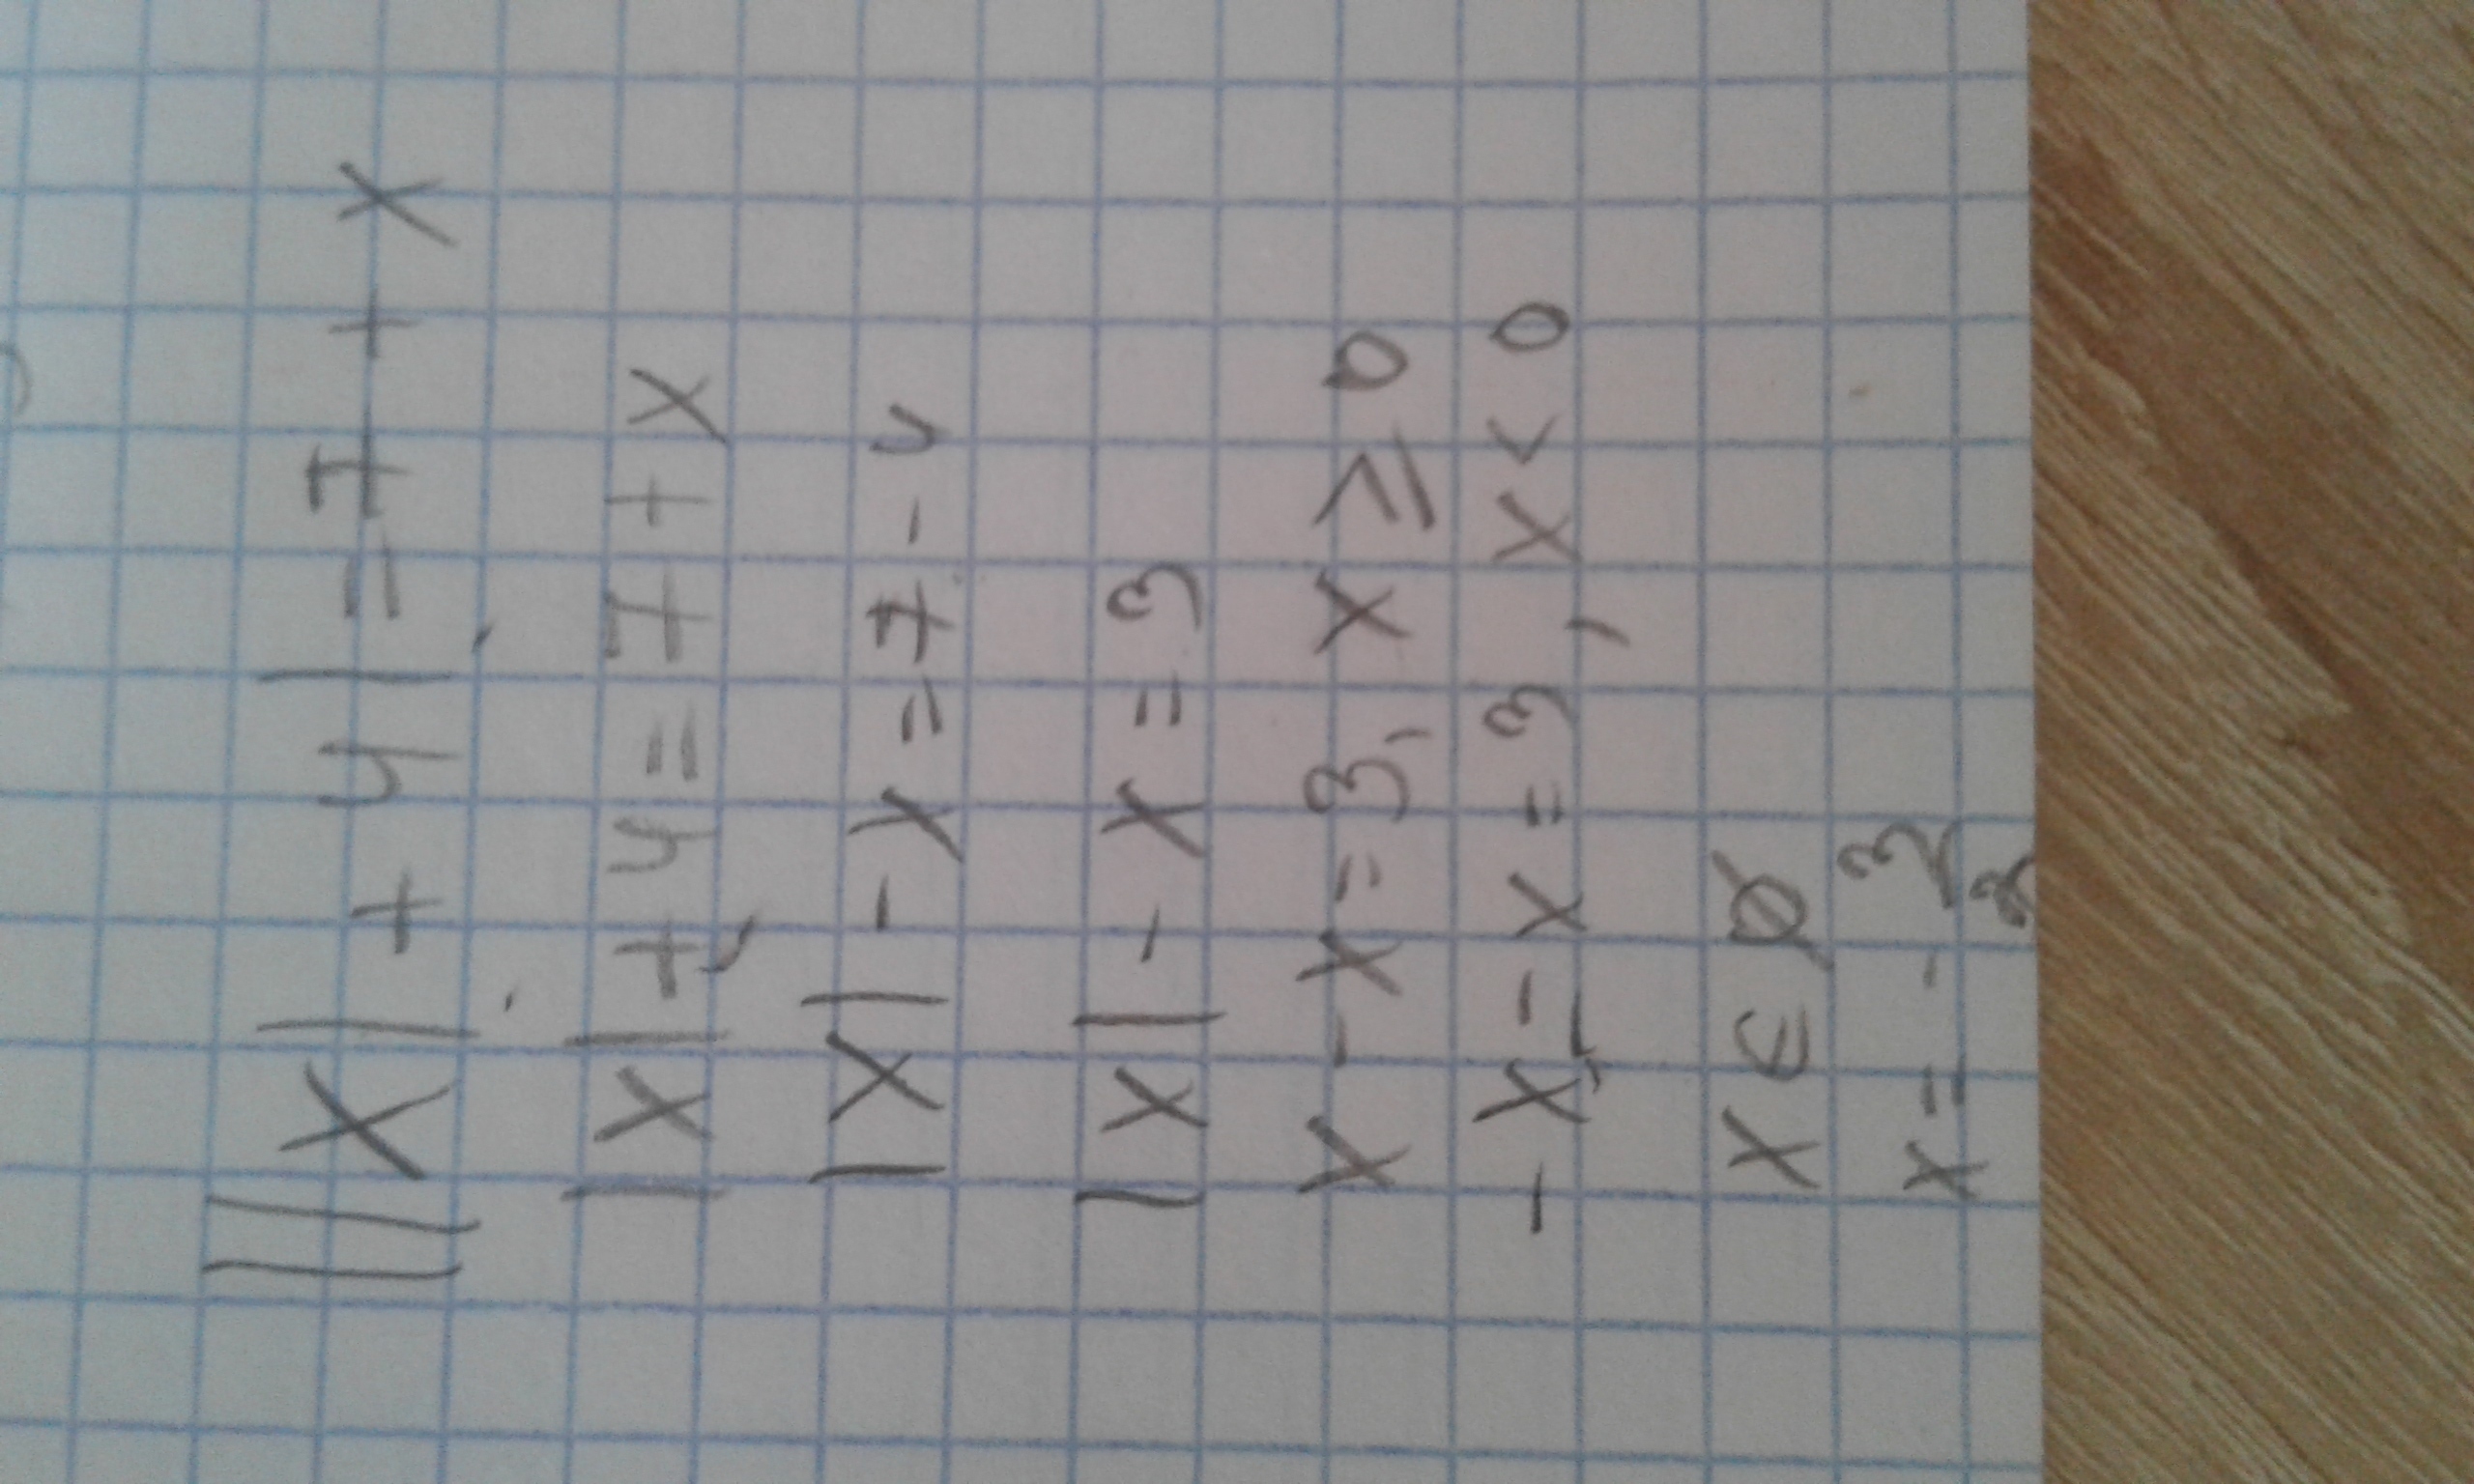 ||x| + 4| = 7 + x
|x| + 4 = 7 + x
|x| - x = 7 - 4
|x| - x = 3
x - x = 3, x ≥ 0
-x - x = 3, x < 0
x ∈ ∅
x = - 3/2